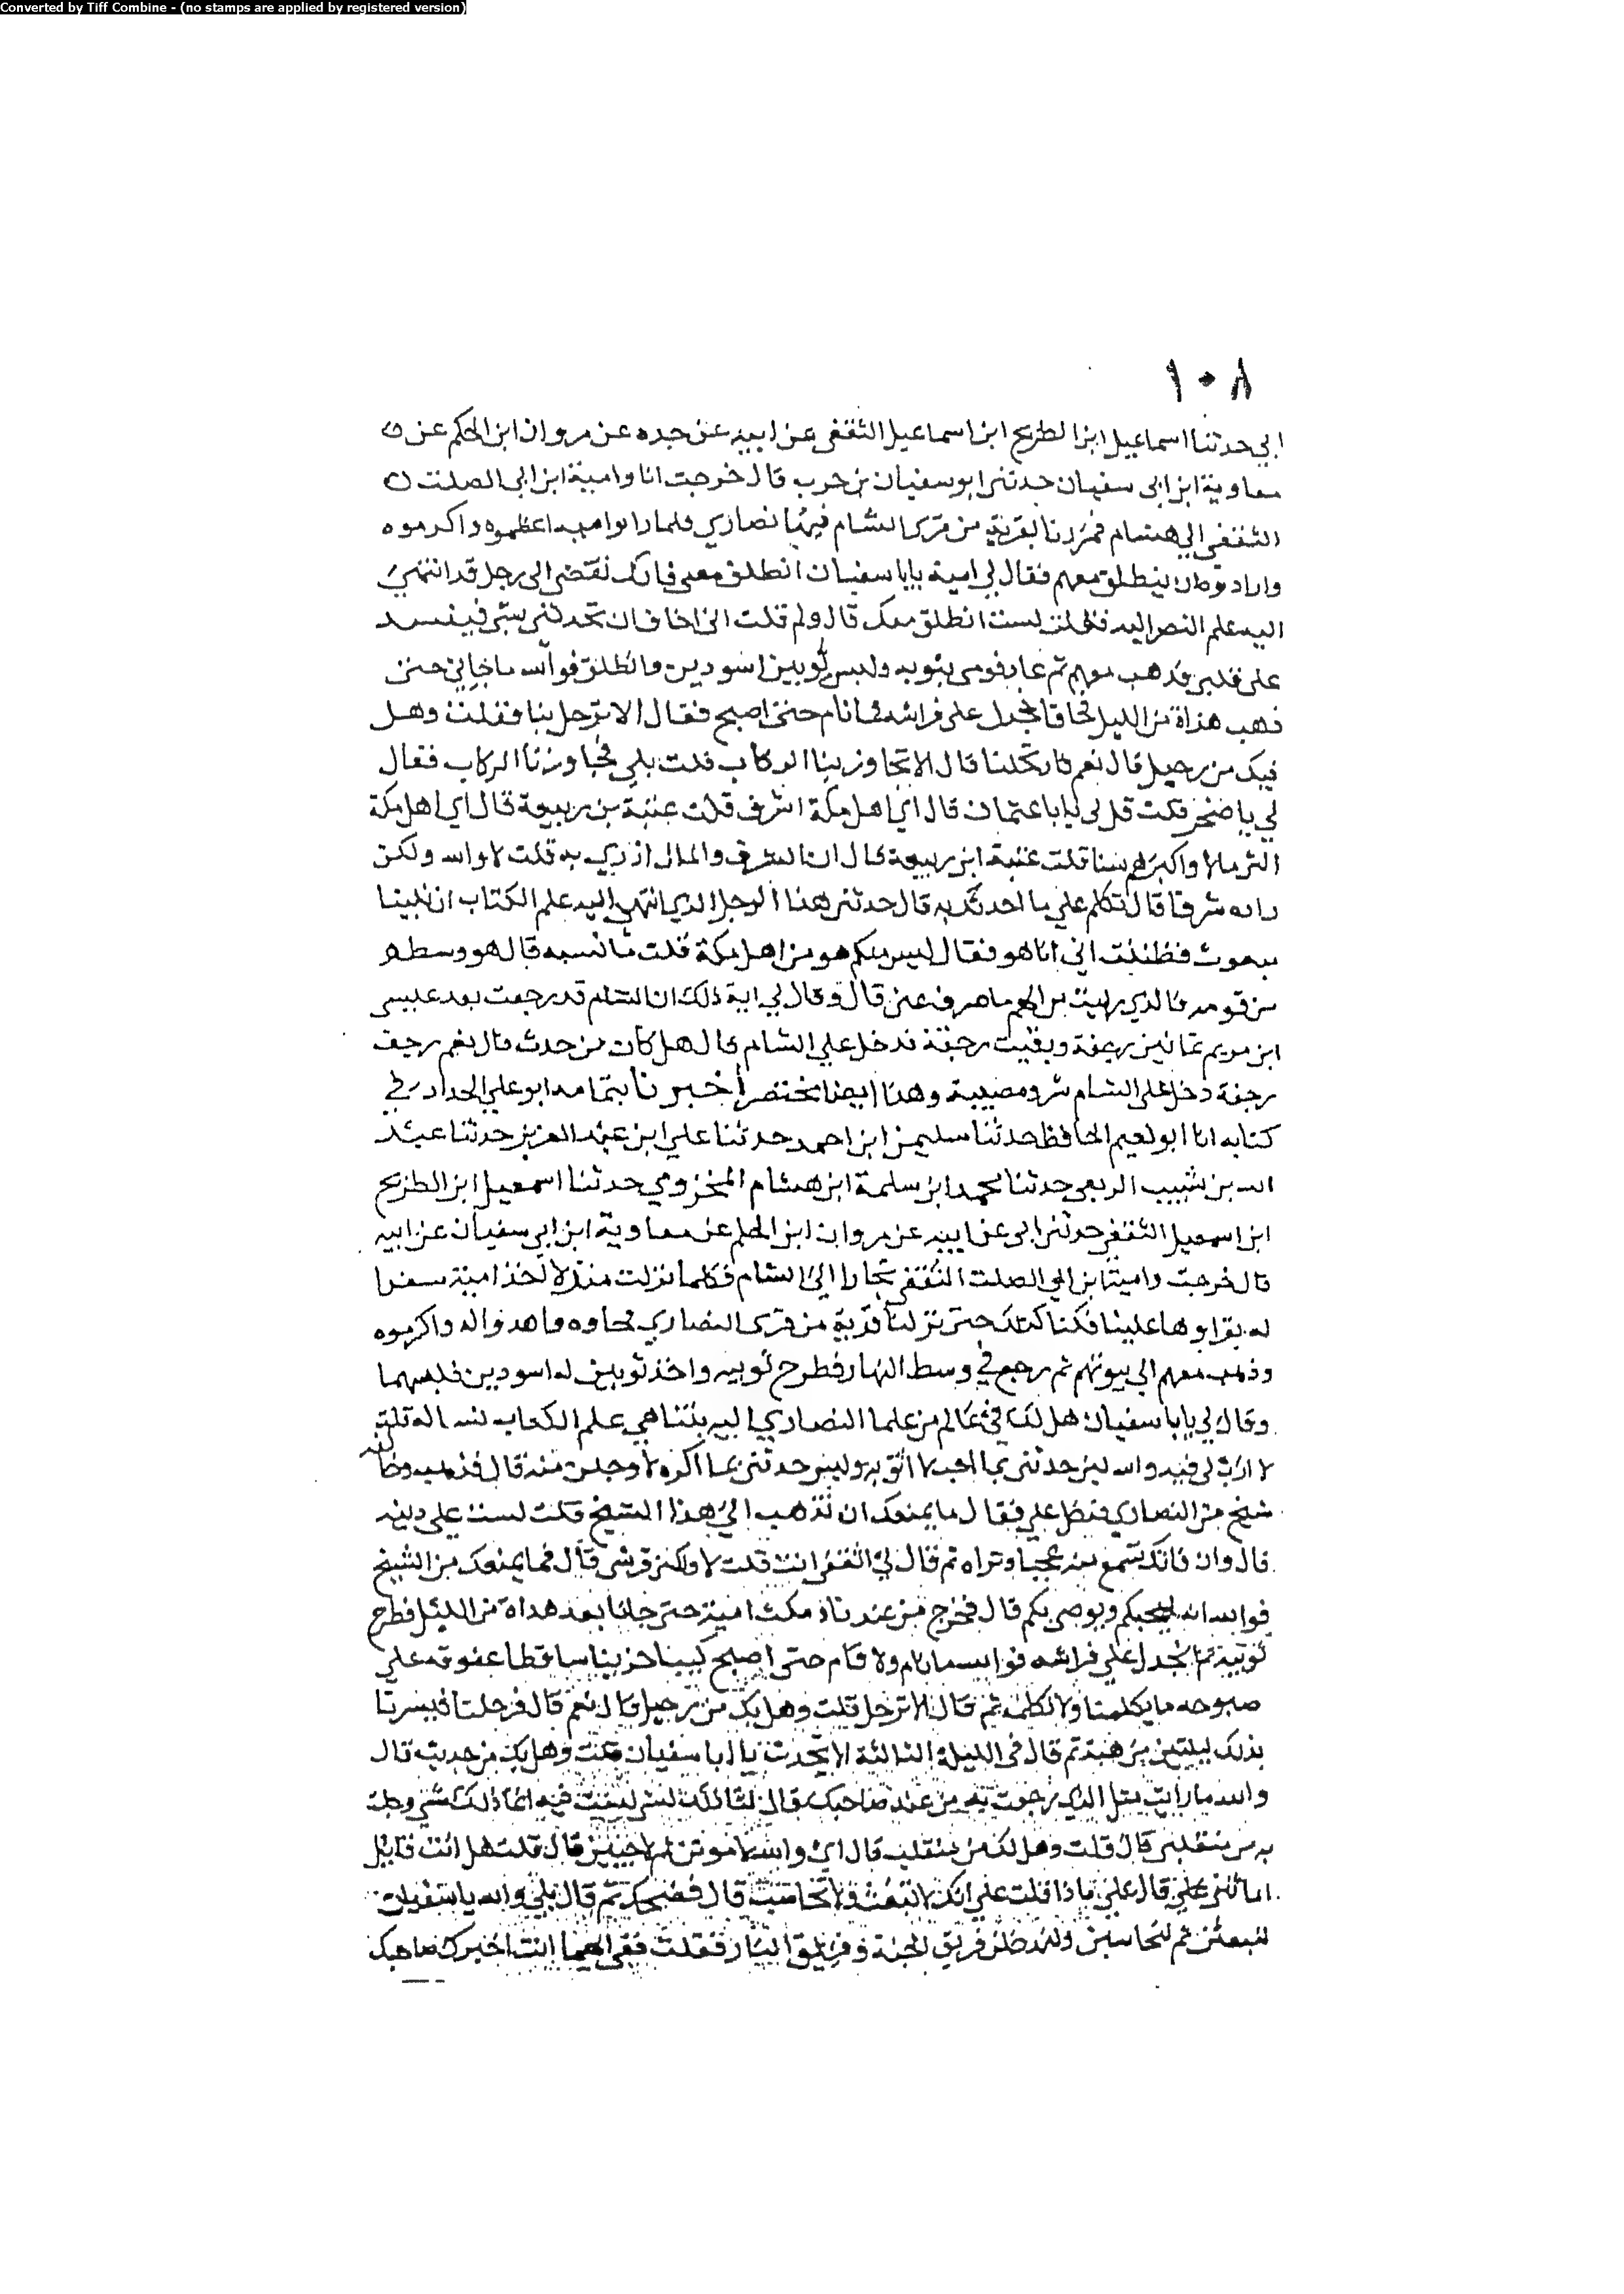 Converted by Tiff Combine - (no stamps are applied by registered version)
١٠٨
ابي حدثنا اسماعيل ابن الطريح ابن اسماعيل الثقفي عن ابيه عن جده عن مروان ابن الحكم عن
معاوية ابن ابي سفيان حدثني ابو سفيان بن حرب قال خرجت انا وامية ابن ابي الصلت
الثقفي الي هشام فمررنا بقرية من قرى الشام فيها نصاري فلما راوا امية اعظموه واكرموه
وارادوه ان ينطلق معهم فقال لي امية يابا سفيان انطلق معي فانك تقضي الى رجل قد انتهي
اليه علم النصرانية فقلت لست انطلق معك قال ولم قلت اني اخاف ان تحدثني بشي فيفسد
على قلبي فذهب معهم ثم عاد فرمى بثوبيه ولبس ثوبين اسودين وانطلق فوالله ما جاني حتى
ذهب هداة من الليل فجا فانجدل على فراشه فما نام حتى اصبح فقال الا ترحل بنا فقلت وهل
فيك من رحيل قال نعم فارتحلنا قال الا تجاوز بنا الركاب قلت بلي فجاوزنا الركاب فقال
لي يا صخر قلت قل لي يابا عثمان قال اي اهل مكة اشرف قلت عتبة بن ربيعة قال اي اهل مكة
اكثر مالا واكبرهم سنا قلت عتبة ابن ربيعة قال ان الشرف والمال ازري به قلت لا والله ولكن
زاده شرفا قال تكلم علي ما احدثك به قال حدثني هذا الرجل الذي انتهي اليه علم الكتاب ان نبينا
مبعوث فظننت اني انا هو فقال ليس منكم هو من اهل مكة قلت فانسبه قال هو وسط
من قومه فالذي رايت من الهم ما صرف عني قال وقال لي اية ذلك ان الشام قد رجفت بعد عيسي
ابن مريم ثمانين رجفة وبقيت رجفة تدخل علي الشام قال هل كان من حدث قال نعم رجفت
رجفة دخل علي الشام شر ومصيبة وهذا ايضا مختصر اخبرنا بتمامه ابو علي الحداد في
كتابه انا ابو نعيم الحافظ حدثنا سليمن ابن احمد حدثنا علي ابن عبد العزيز حدثنا عبد
الله بن شبيب الربعي حدثنا محمد ابن سلمة ابن هشام المخزومي حدثنا اسمعيل ابن الطريح
ابن اسمعيل الثقفي حدثني ابى عن ابيه عن مروان ابن الحكم عن معاوية ابن ابى سفيان عن ابيه
قال خرجت وامية ابن ابي الصلت الثقفي تجارا الى الشام فكلما نزلت منزلا اخذ امية سفرا
له يقراوها علينا فكنا كذلك حتى نزلنا قرية من قرى النصاري فجاوه واهدوا له واكرموه
وذهب معهم الي بيوتهم ثم رجع في وسط النهار فطرح ثوبيه واخذ ثوبين له اسودين فلبسهما
وقال لي يابا سفيان هل لك في عالم من علما النصاري اليه يتناهي علم الكتاب نساله قلت
لا ارب لي فيه والله لين حدثني بما احب لا اثق به ولين حدثني بما اكره لاوجلن منه قال فذهب وخالفه
شيخ من النصاري فدخل علي فقال ما يمنعك ان تذهب الي هذا الشيخ قلت لست علي دينه
قال وان فانك تسمع منه عجبا وتراه ثم قال لي اثقفي انت قلت لا ولكن قرشي قال فما يمنعك من الشيخ
فوالله انه ليحبكم ويوصي بكم قال فخرج من عندنا ومكث امية حتى جانا بعد هداة من الليل فطرح
ثوبيه ثم انجدل علي فراشه فوالله ما نام ولا قام حتى اصبح كيبا حزينا ساقطا غبوقه علي
صبوحه ما يكلمنا ولا نكلمه ثم قال الا ترحل قلت وهل بك من رحيل قال نعم قال فرحلنا فسرنا
بذلك ليلتين من همه ثم قال في الليلة الثالثة الا تحدث يا ابا سفيان قلت وهل بك من حديث قال
والله ما رايت مثل الذي رجعت به من عند صاحبك قال اما ان ذلك لشي لست فيه انما ذلك شي وجلت
به من منقلبي قال قلت وهل لك من منقلب قال اي والله لاموتن ثم لاحيين قال قلت هل انت قابل
امانتي قال علي ماذا قلت علي انك لا تبعث ولا تحاسب قال فضحك ثم قال بلي والله يابا سفيان
لنبعثن ثم لنحاسبن وليدخلن فريق الجنة وفريق النار فقلت ففي ايهما انت اخبرك صاحبك